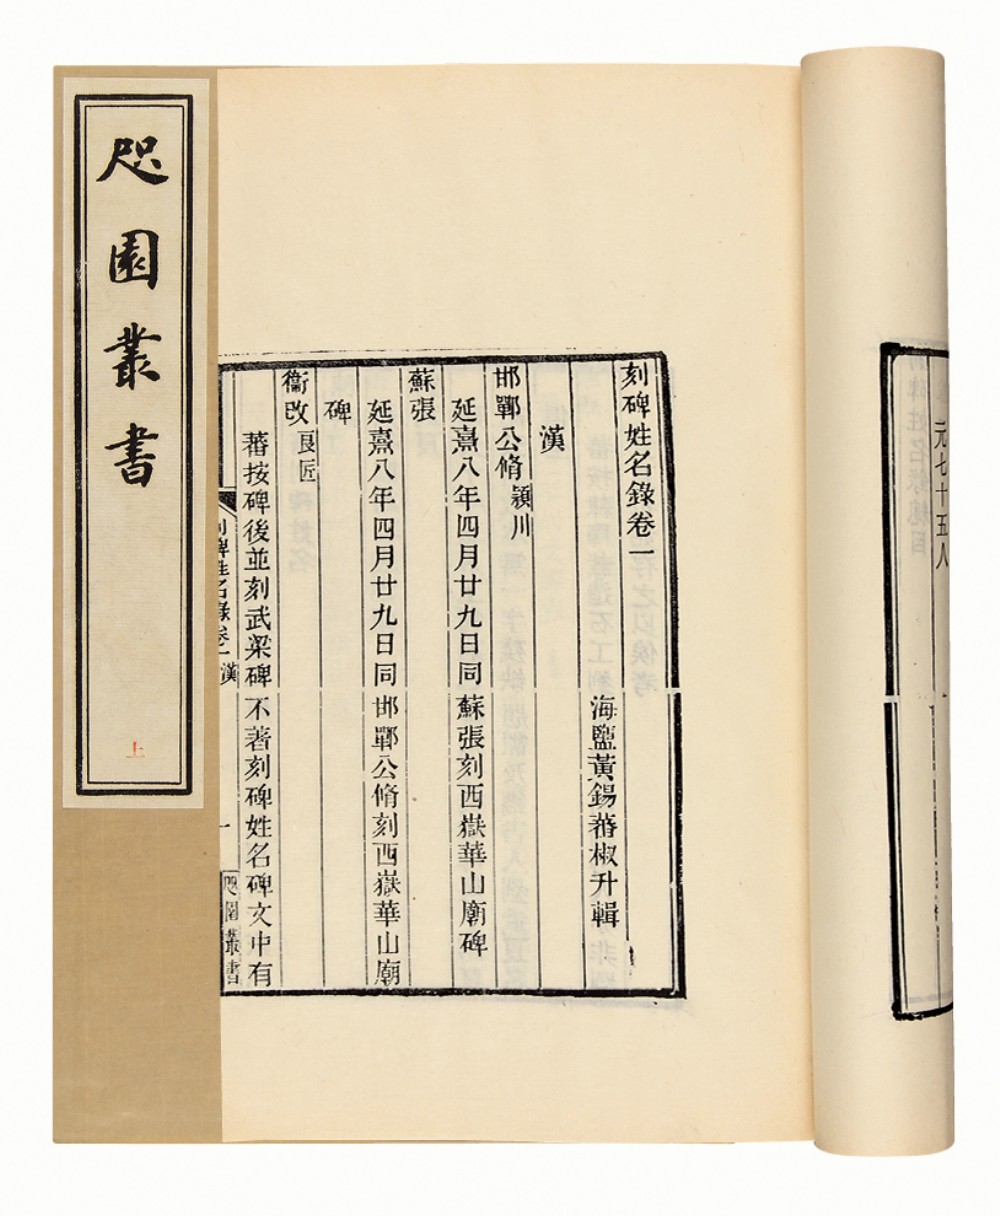 咫園叢書
上
刻碑姓名錄卷一
海鹽黃錫蕃椒升輯
漢
邯鄲公脩潁川
延熹八年四月廿九日同蘇張刻西嶽華山廟碑
蘇張
延熹八年四月廿九日同邯鄲公脩刻西嶽華山廟
碑
衞改良匠
蕃按碑後並刻武梁碑不著刻碑姓名碑文中有
刻碑姓名錄卷一 漢
一
咫園叢書
元七十五人